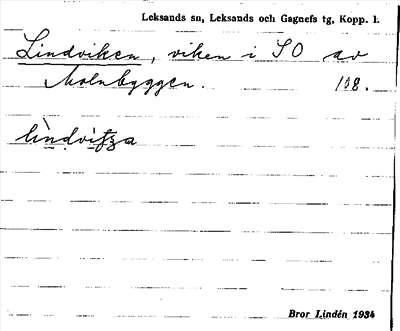 Leksands sn, Leksands och Gagnefs tg, Kopp. l.
Lindviken, viken i SO av
Molnbyggen. 108.
lìndvìtʒa
Bror Lindén 1934